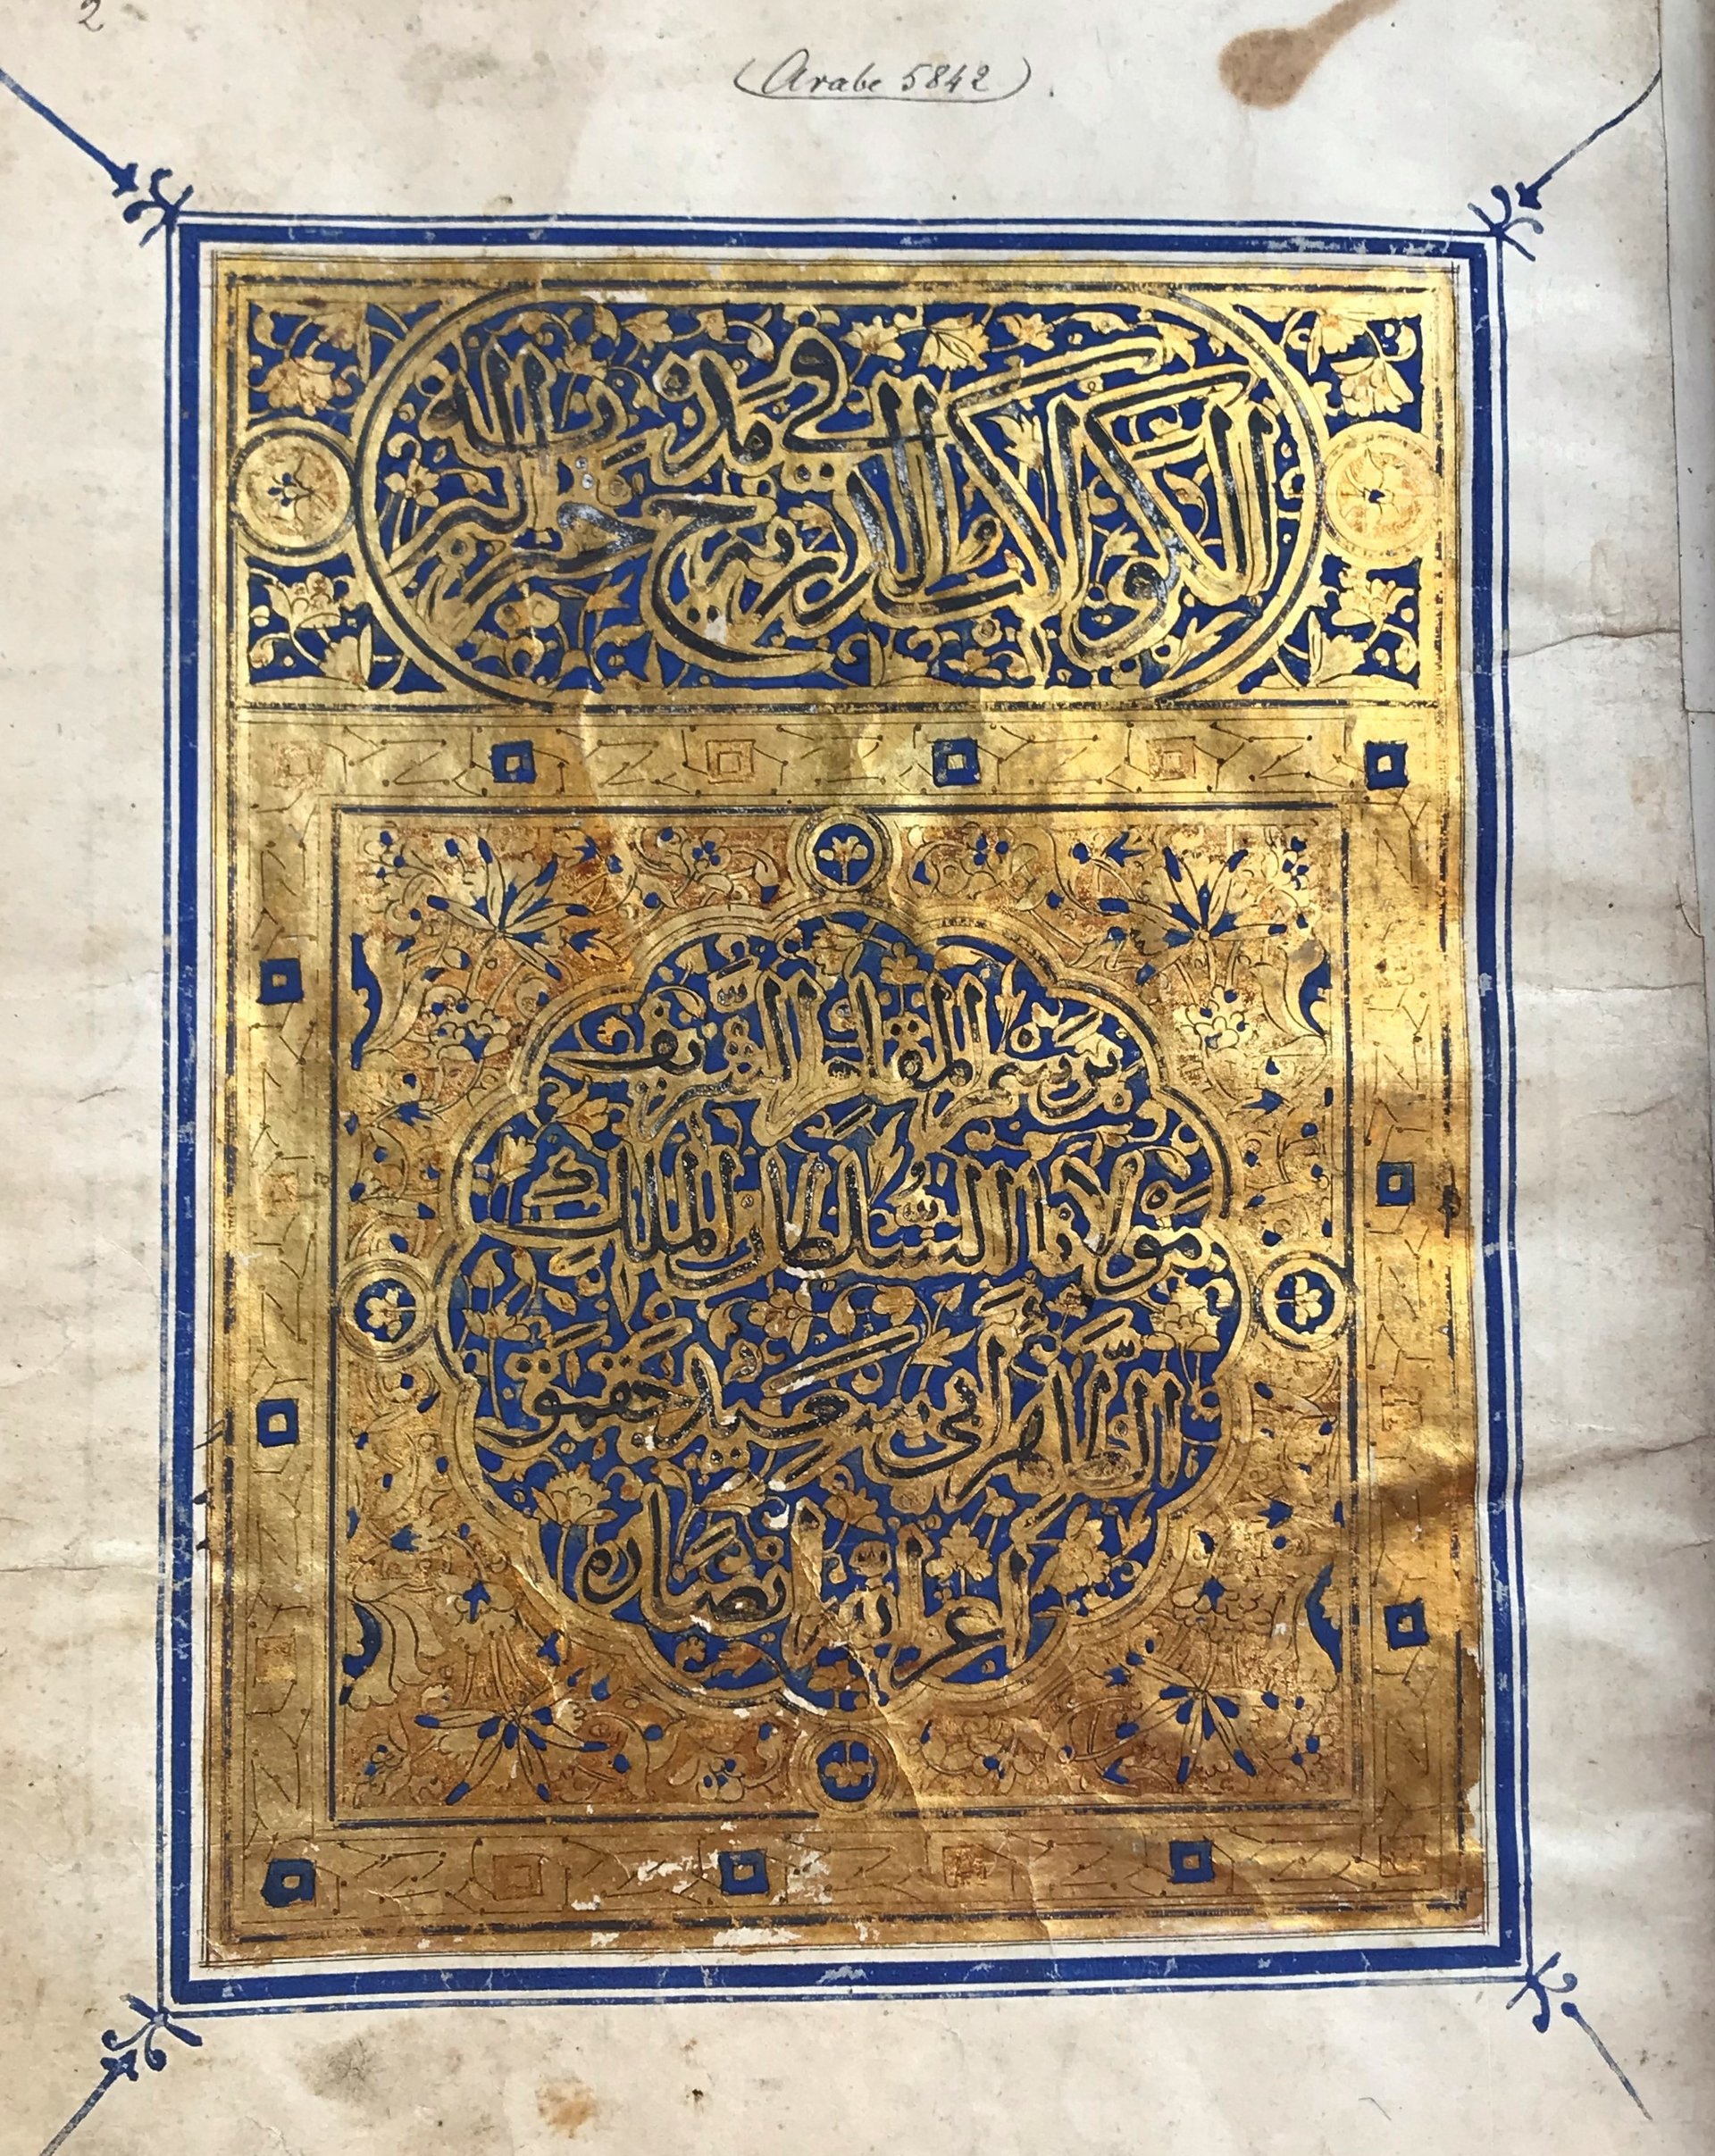 2
(Arabe 5842).
الكواكب الدرية في مدح خير البرية
برسم المقام الشريف
مولانا السلطان الملك
الظاهر أبي سعيد جقمق
أعز الله أنصاره